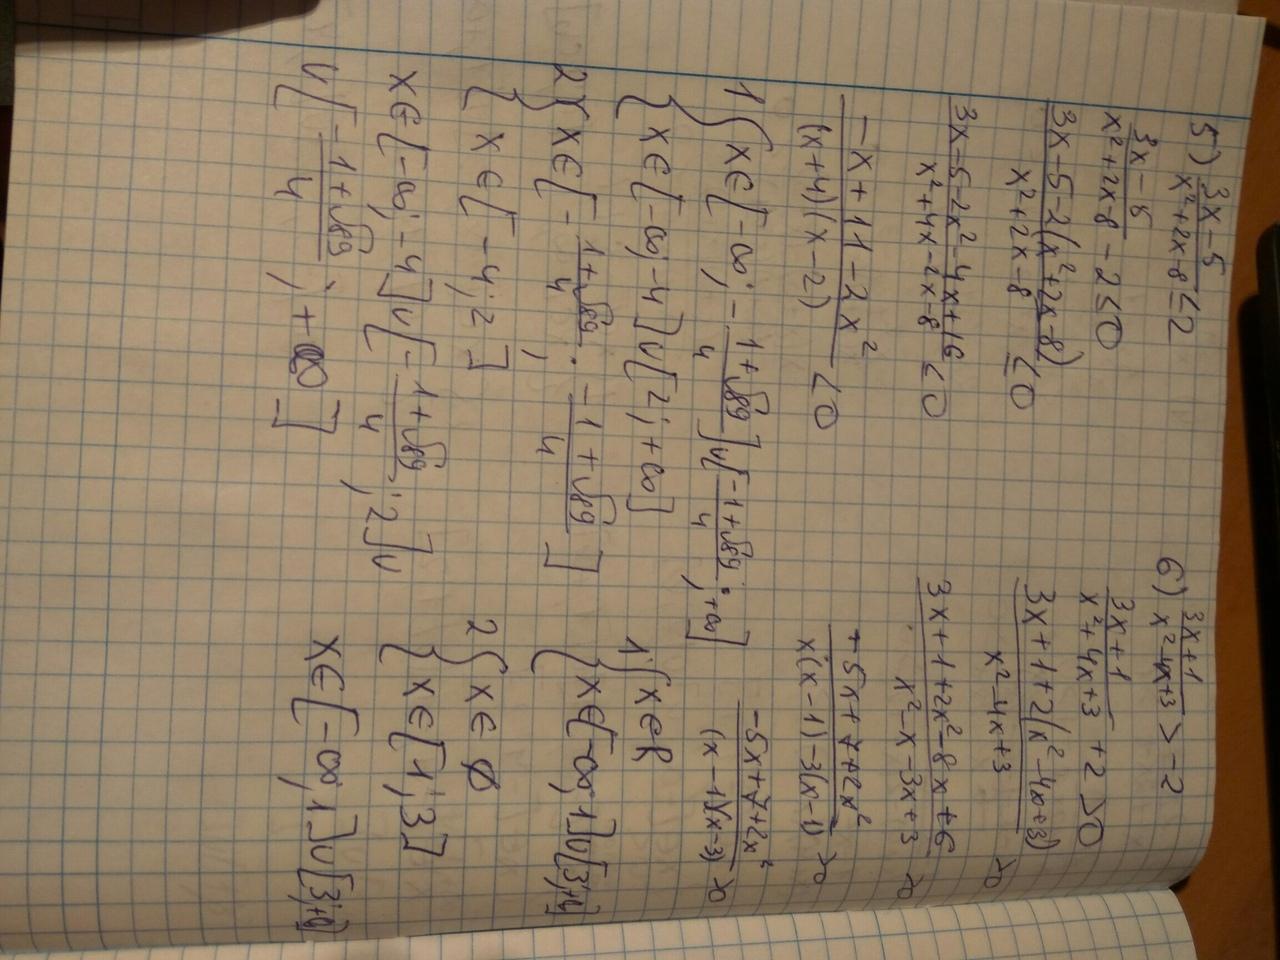 5) (3x-5)/(x²+2x-8) ≤ 2
(3x-5)/(x²+2x-8) - 2 ≤ 0
(3x-5-2(x²+2x-8))/(x²+2x-8) ≤ 0
(3x-5-2x²-4x+16)/(x²+4x-2x-8) < 0
(-x+11-2x²)/((x+4)(x-2)) < 0
1 { x∈[-∞; -(1+√89)/4] ∪ [(-1+√89)/4; +∞]
{ x∈[-∞; -4] ∪ [2; +∞]
2 { x∈[-(1+√89)/4; (-1+√89)/4]
{ x∈[-4; 2]
x∈[-∞; -4] ∪ [-(1+√89)/4; 2] ∪
∪ [(-1+√89)/4; +∞]
6) (3x+1)/(x²-4x+3) > -2
(3x+1)/(x²+4x+3) + 2 > 0
(3x+1+2(x²-4x+3))/(x²-4x+3) > 0
(3x+1+2x²-8x+6)/(x²-x-3x+3) > 0
(-5x+7+2x²)/(x(x-1)-3(x-1)) > 0
(-5x+7+2x²)/((x-1)(x-3)) > 0
1 { x∈R
{ x∈[-∞; 1] ∪ [3; +∞]
2 { x∈ Ø
{ x∈[1; 3]
x∈[-∞; 1] ∪ [3; +∞]